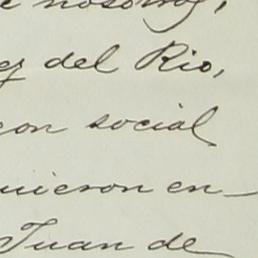 e nosotros,
ez del Rio,
zon social
uieron en-
Juan de